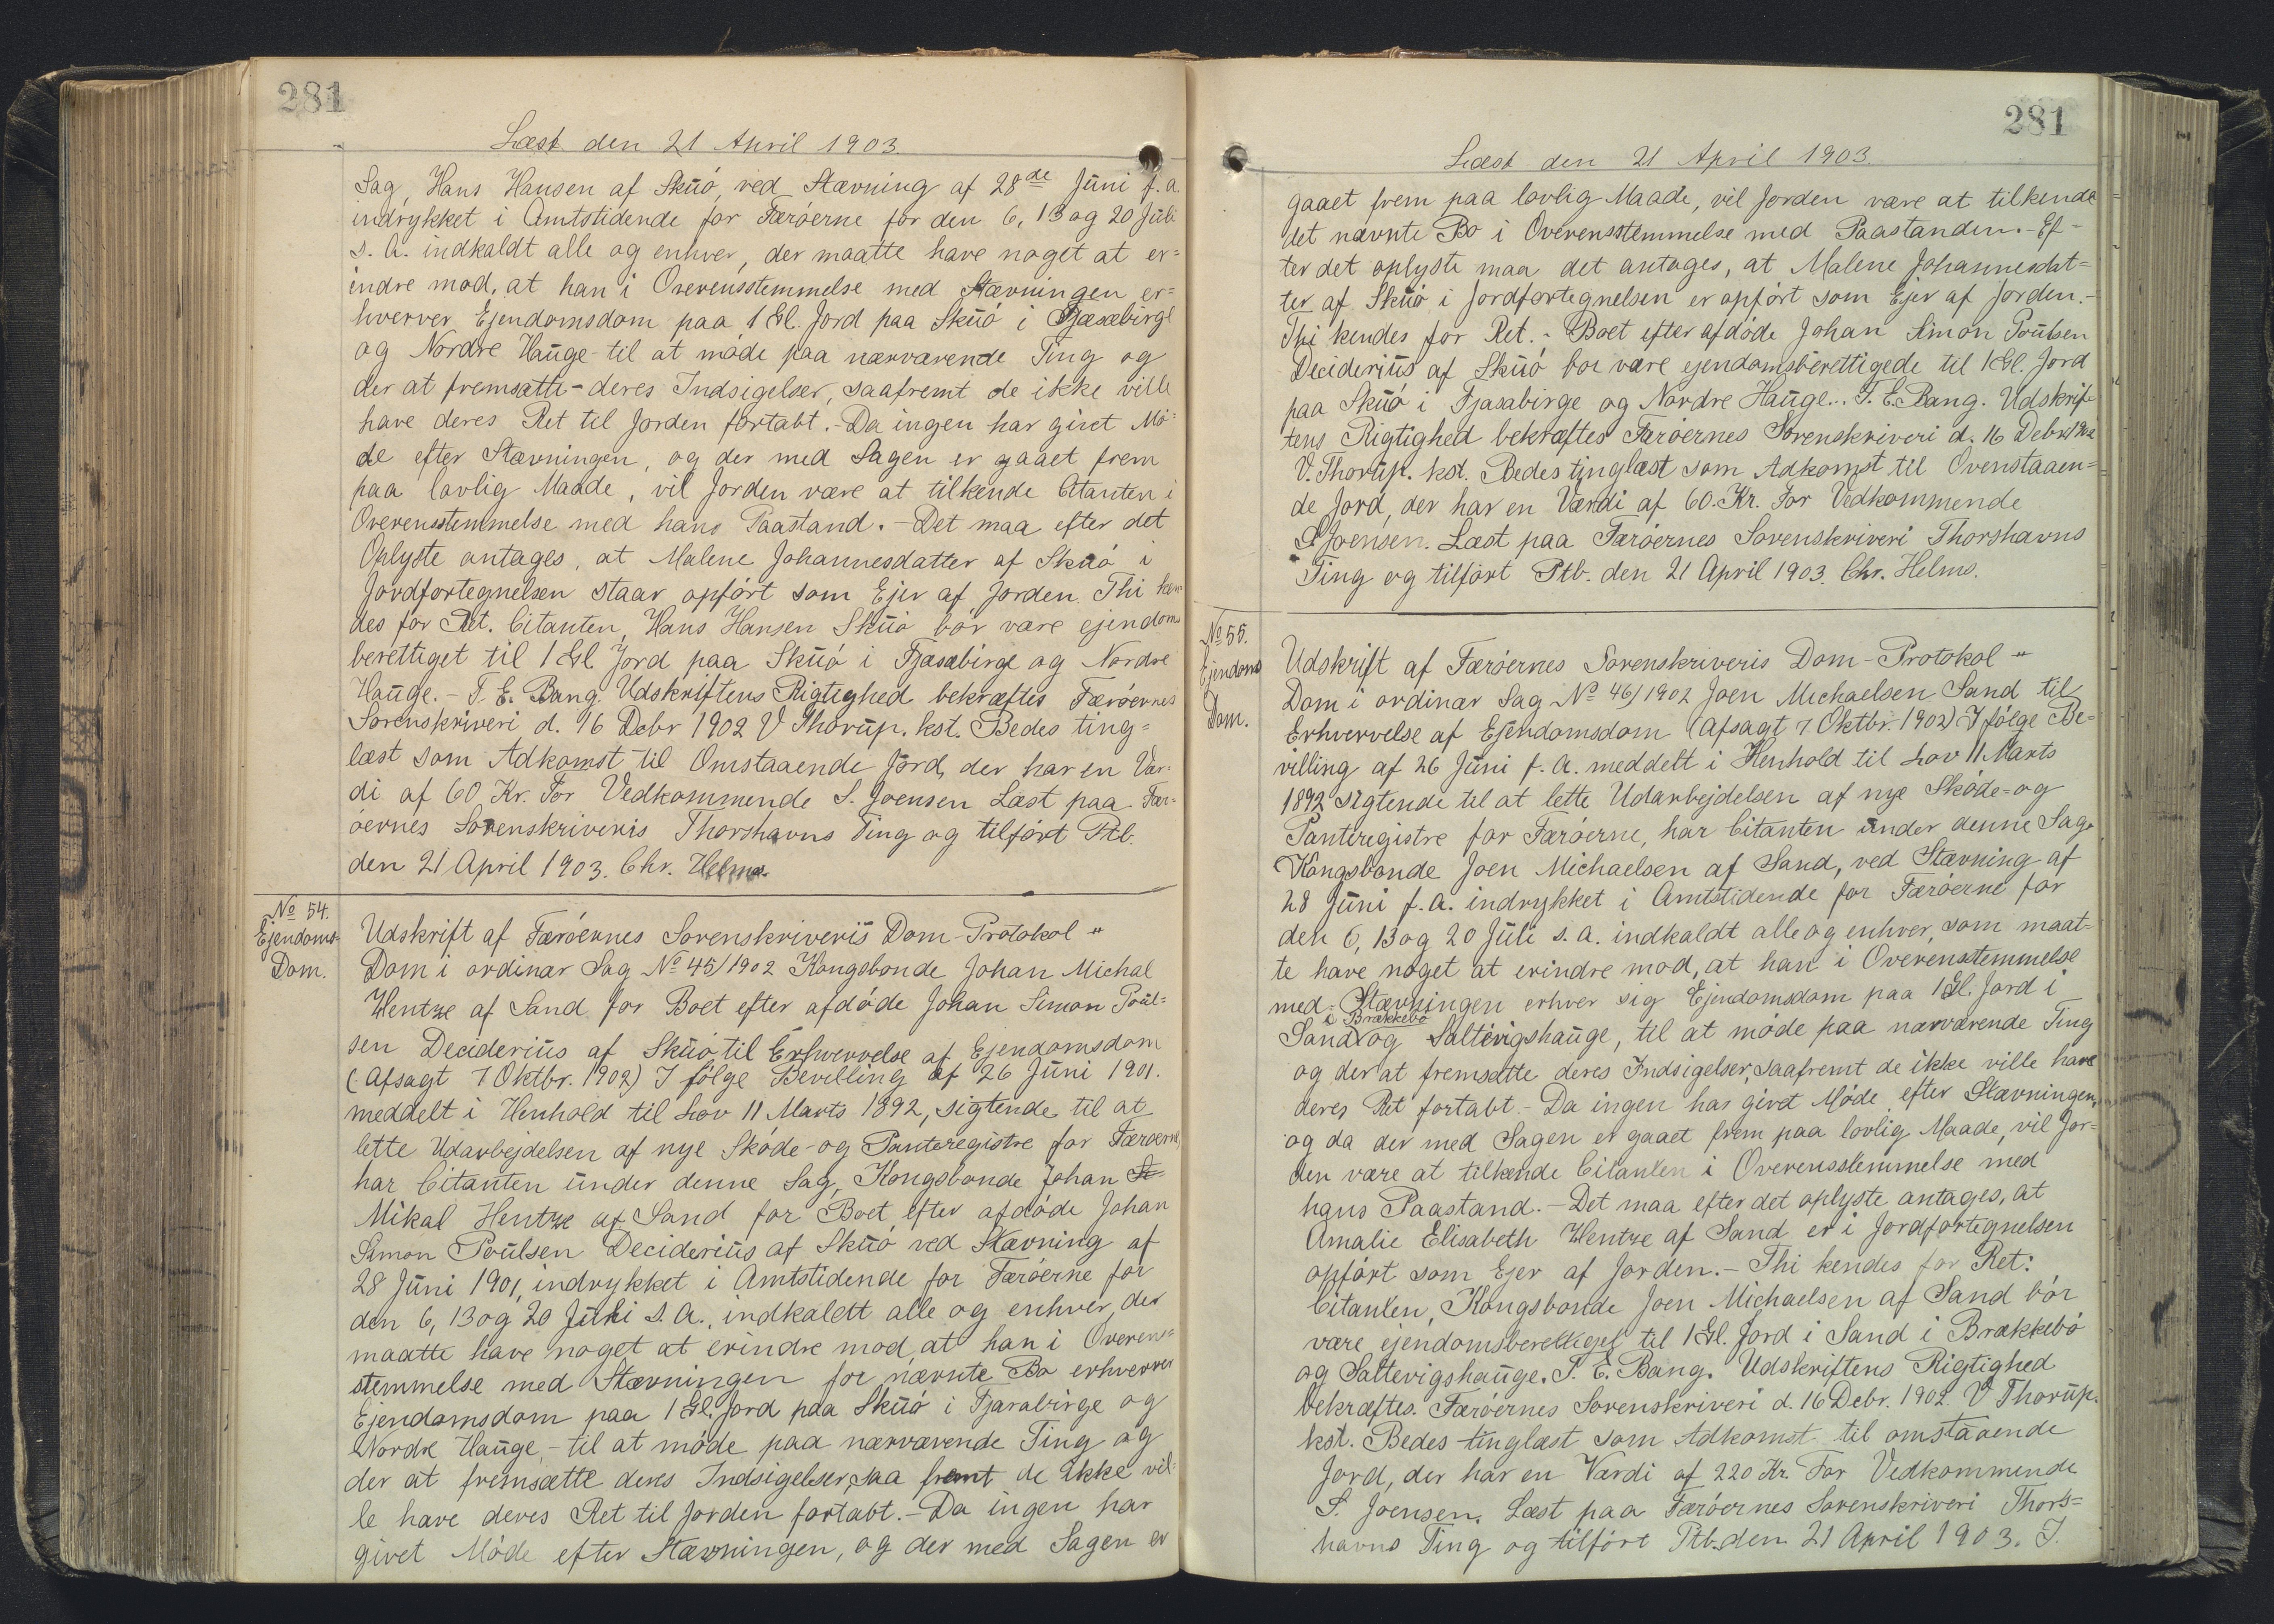 281
Læst den 21 April 1903.
Sag, Hans Hansen af Skuö, ved Stævning af 28de Juni f. a.
indrykket i Amtstidende for Færöerne for den 6, 13 og 20 Juli
s. A. indkaldt alle og enhver, der maatte have noget at er=
indre mod, at han i Overensstemmelse med Stævningen er=
hverver Ejendomsdom paa 1 Gl. Jord paa Skuö i Fjasabirge
og Nordre Hauge - til at möde paa nærværende Ting og
der at fremsætte - deres Indsigelser, saafremt de ikke ville
have deres Ret til Jorden fortabt. - Da ingen har givet Mö=
de efter Stævningen, og der med Sagen er gaaet frem
paa lovlig Maade, vil Jorden være at tilkende Citanten i
Overensstemmelse med hans Paastand. - Det maa efter det
Oplyste antages, at Malene Johannesdatter af Skuö i
Jordfortegnelsen staar opfört som Ejer af Jorden. Thi ken
des for Ret. Citanten, Hans Hansen Skuö bör være ejendoms
berettiget til 1 Gl. Jord paa Skuö i Fjasabirge og Nordre
Hauge. - T. E. Bang. Udskriftens Rigtighed bekræftes Færöernes
Sorenskriveri d. 16 Debr 1902 V Thorup. kst. Bedes ting=
læst som Adkomst til Omstaaende Jord, der har en Vær=
di af 60 Kr. For Vedkommende S. Joensen Læst paa Fær=
oernes Sorenskriveris Thorshavns Ting og tilfört Ptb.
den 21 April 1903. Chr. Helms.
No 54.
Ejendoms-
Dom.
Udskrift af Færöernes Sorenskriveris Dom-Protokol "
Dom i ordinær Sag No 45/1902 Kongsbonde Johan Michal
Hentze af Sand for Boet efter afdöde Johan Simon Poul=
sen Deciderius af Skuö til Erhvervelse af Ejendomsdom
(Afsagt 7 Oktbr. 1902) I fölge Bevilling af 26 Juni 1901.
meddelt i Henhold til Lov 11 Marts 1892, sigtende til at
lette Udarbejdelsen af nye Sköde- og Panteregistre for Færöerne,
har Citanten under denne Sag, Kongsbonde Johan
Mikal Hentze af Sand for Boet efter afdöde Johan
Simon Poulsen Deciderius af Skuö ved Stævning af
28 Juni 1901, indrykket i Amtstidende for Færöerne for
den 6, 13 og 20 Juli s. A., indkaldt alle og enhver, der
maatte have noget at erindre mod, at han i Overens=
stemmelse med Stævningen for nævnte Bo erhverver
Ejendomsdom paa 1 Gl. Jord paa Skuö i Fjasabirge og
Nordre Hauge, - til at möde paa nærværende Ting og
der at fremsætte deres Indsigelser, saa fremt de ikke vil=
le have deres Ret til Jorden fortabt. - Da ingen har
givet Möde efter Stævningen, og der med Sagen er
281
Læst den 21 April 1903.
gaaet frem paa lovlig Maade, vil Jorden være at tilkende
det nævnte Bo i Overensstemmelse med Paastanden. - Ef=
ter det oplyste maa det antages, at Malene Johannesdat=
ter af Skuö i Jordfortegnelsen er opfört som Ejer af Jorden. -
Thi kendes for Ret. - Boet efter afdöde Johan Simon Poulsen
Deciderius af Skuö bör være ejendomsberettigede til 1 Gl. Jord
paa Skuö i Fjasabirge og Nordre Hauge. - T. E. Bang. Udskrif=
tens Rigtighed bekræftes Færöernes Sorenskriveri d. 16 Debr. 1902
V. Thorup. kst. Bedes tinglæst som Adkomst til Ovenstaaen=
de Jord, der har en Værdi af 60. Kr. For Vedkommende
S Joensen. Læst paa Færöernes Sorenskriveri Thorshavns
Ting og tilfört Ptb. den 21 April 1903. Chr. Helms.
No 55.
Ejendoms
Dom.
Udskrift af Færöernes Sorenskriveris Dom-Protokol "
Dom i ordinær Sag No 46/1902 Joen Michaelsen Sand til
Erhvervelse af Ejendomsdom (Afsagt 7 Oktbr. 1902) I fölge Be=
villing af 26 Juni f. A. meddelt i Henhold til Lov 11 Marts
1892 sigtende til at lette Udarbejdelsen af nye Sköde- og
Panteregistre for Færöerne, har Citanten under denne Sag,
Kongsbonde Joen Michaelsen af Sand, ved Stævning af
28 Juni f. A. indrykket i Amtstidende for Færöerne for
den 6, 13 og 20 Juli s. A. indkaldt alle og enhver, som maat=
te have noget at erindre mod, at han i Overensstemmelse
med Stævningen erhver sig Ejendomsdom paa 1 Gl. Jord i
i Brækkebö
Sand og Saltevigshauge, til at möde paa nærværende Ting
og der at fremsætte deres Indsigelser, saafremt de ikke ville have
deres Ret fortabt. - Da ingen har givet Möde efter Stævningen,
og da der med Sagen er gaaet frem paa lovlig Maade, vil Jor=
den være at tilkende Citanten i Overensstemmelse med
hans Paastand. - Det maa efter det oplyste antages, at
Amalie Elisabeth Hentze af Sand er i Jordfortegnelsen
opfört som Ejer af Jorden. - Thi kendes for Ret:
Citanten, Kongsbonde Joen Michaelsen af Sand bör
være ejendomsberettiget til 1 Gl. Jord i Sand i Brækkebö
og Saltevigshauge. T. E. Bang. Udskriftens Rigtighed
bekræftes. Færöernes Sorenskriveri d. 16 Debr. 1902. V Thorup.
kst. Bedes tinglæst som Adkomst til omstaaende
Jord, der har en Værdi af 220 Kr. For Vedkommende
S. Joensen. Læst paa Færöernes Sorenskriveri Thors=
havns Ting og tilfört Ptb. den 21 April 1903. I.